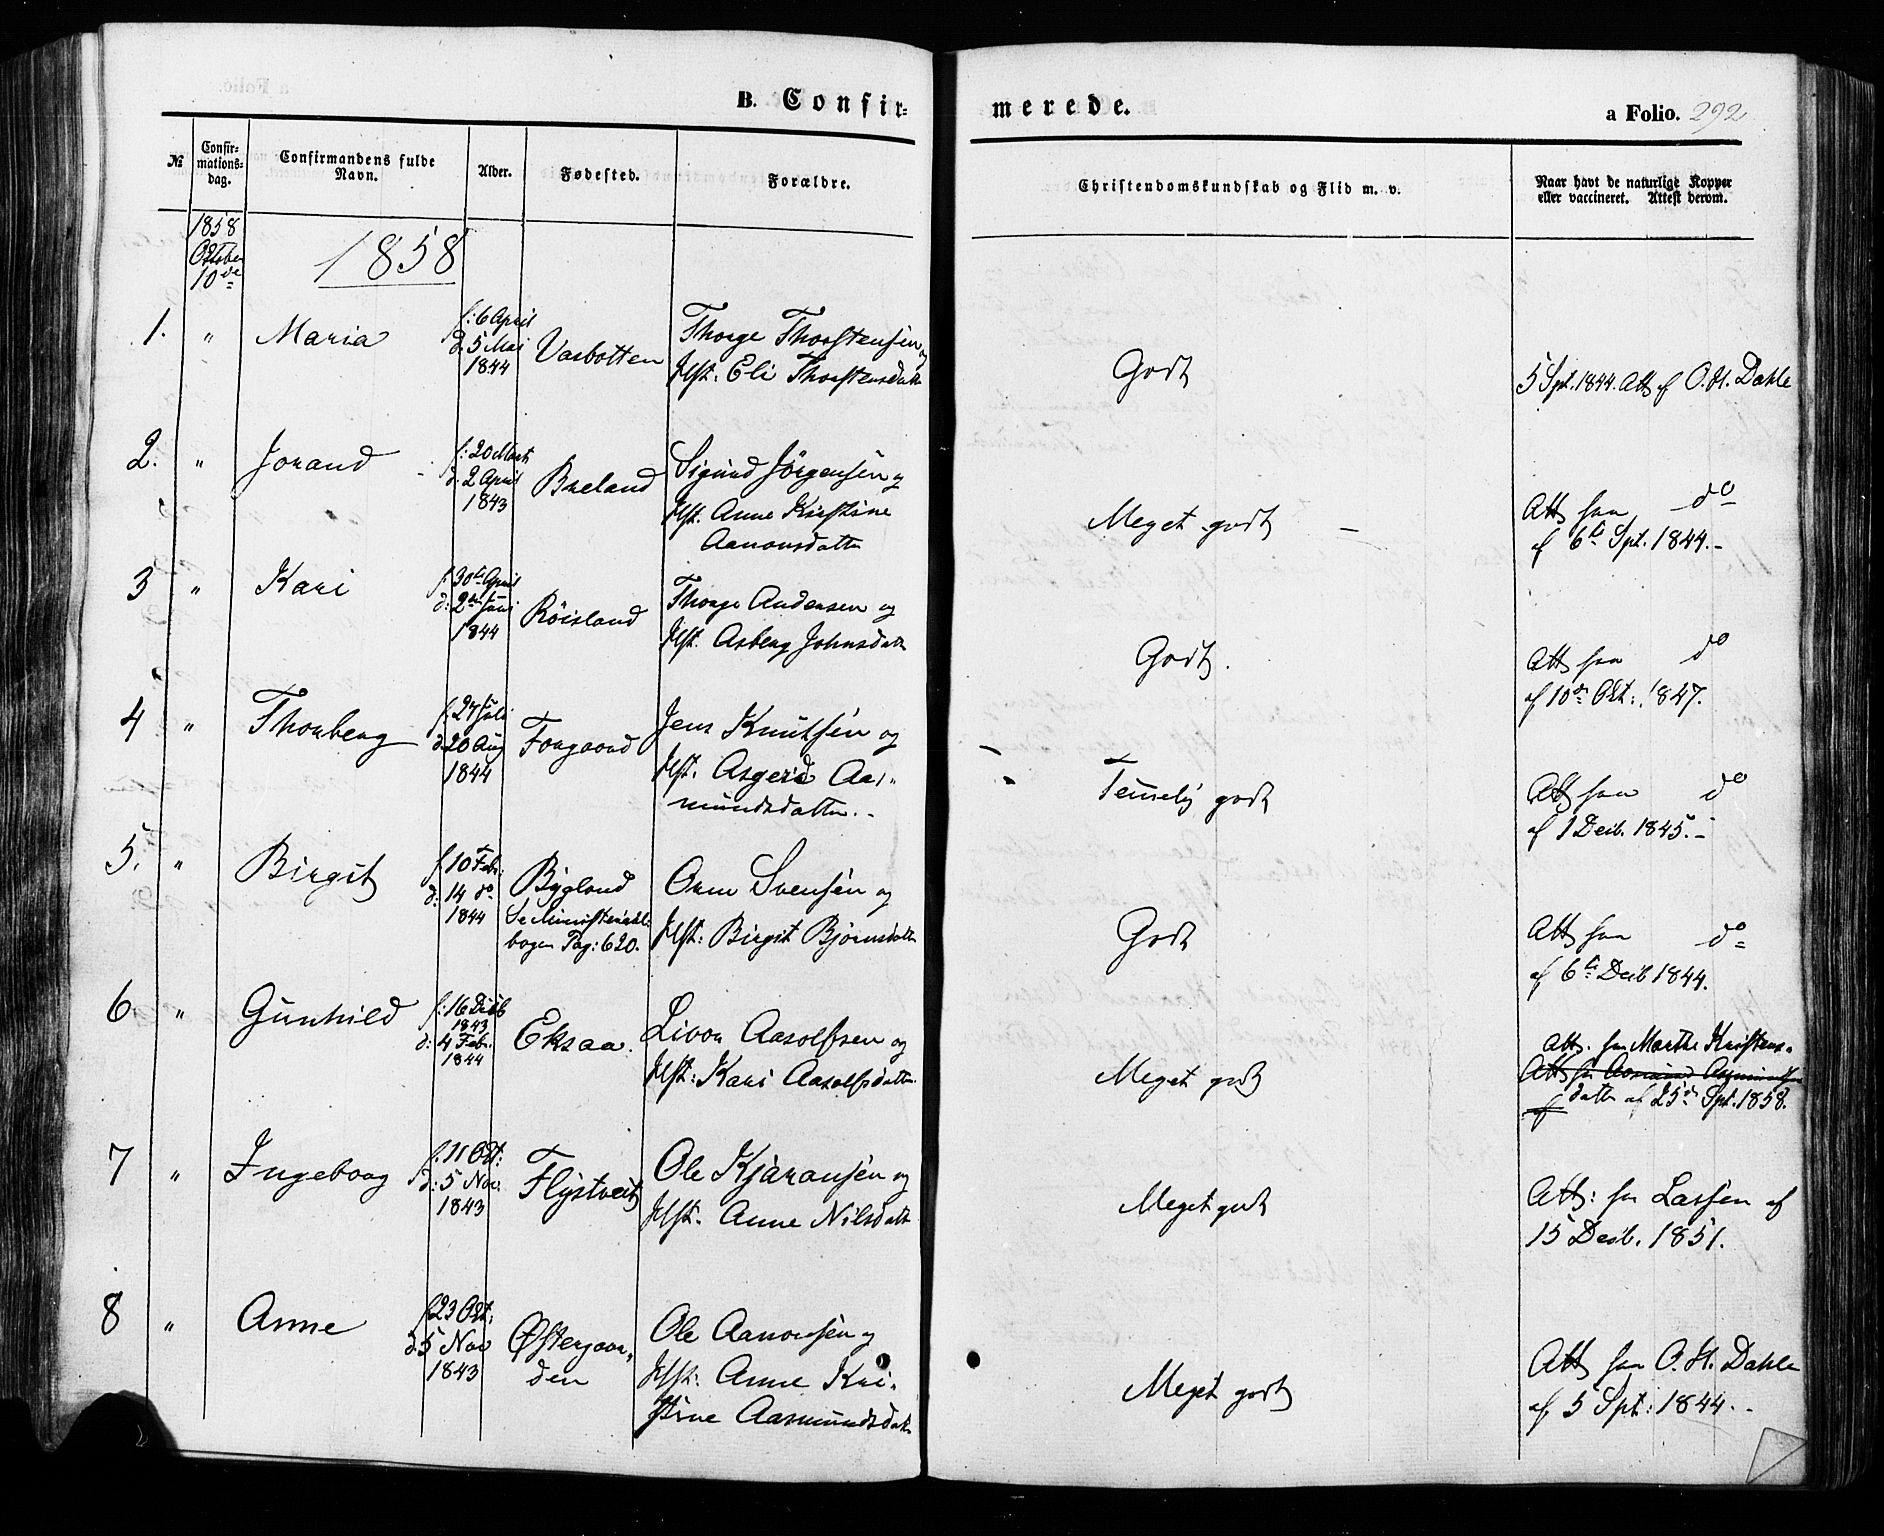 B. Confir-
merede.
a Folio. 292
№
Confir-
mations-
dag.
Confirmandens fulde
Navn.
Alder.
Fødested.
Forældre.
Christendomskundskab og Flid m. v.
Naar havt de naturlige Kopper
eller vaccineret. Attest derom.
1858
October
10de
1858
1. " Maria
f: 6 April
d. 5 Mai
1844
Vasbotten
Thorge Thorstensen og
Hst: Eli Thorstensdatt
Godt
5 Spt. 1844. Att. af O. H. Dahle
2. " Jorand
f: 20 Marts
d. 2 April
1843
Breland
Sigurd Jörgensen og
Hst. Anne Kirstine
Aanonsdatter
Meget godt
Att fra do
af 6te Spt. 1844.-
3 " Kari
f. 30te April
d: 2den Juni
1844
Röisland
Thorge Andersen og
Hst. Asberg Johnsdatt
Godt.
Att fra do
af 10de Okt: 1847.
4 " Thorberg
f. 27 Juli
d. 20 Aug
1844
Forgaard
Jens Knutsen og
Hst. Asgerd Aas-
mundsdatter.-
Temelig godt
Att fra do
af 1 Decb. 1845.-
5. " Birgit
f. 10 Febr.
d: 14 do
1844
Bygland
Se Ministerial-
bogen Pag: 620.
Orm Svensen og
Hst: Birgit Bjørnsdatter
Godt
Att fra do
af 6te Decb 1844.
6 " Gunhild
f: 16 Decb
1843
d: 4 Febr.
1844
Eksaa.
Livor Aasolfsen og
Hst: Kari Aasolfsdatter
Meget godt
Att. fra Marthe Kristens-
Att fra Aasmund Asmundsen
af datter af 25de Spt. 1858.
7 " Ingeborg
f. 11 Okt:
d: 5 Nov.
1843
Flystveit
Ole Kjøransen og
Hst. Anne Nilsdatt
Meget godt
Att: fra Lassen af
15 Decb. 1851.
8 " Anne
f 23 Okt:
d. 5 Nov
1843
Østergaar-
den
Ole Aanonsen og
Hst: Anne Kri-
stine Aasmundsdatt
Meget godt
Att fra O. H. Dahle
af 5 Spt: 1844.-